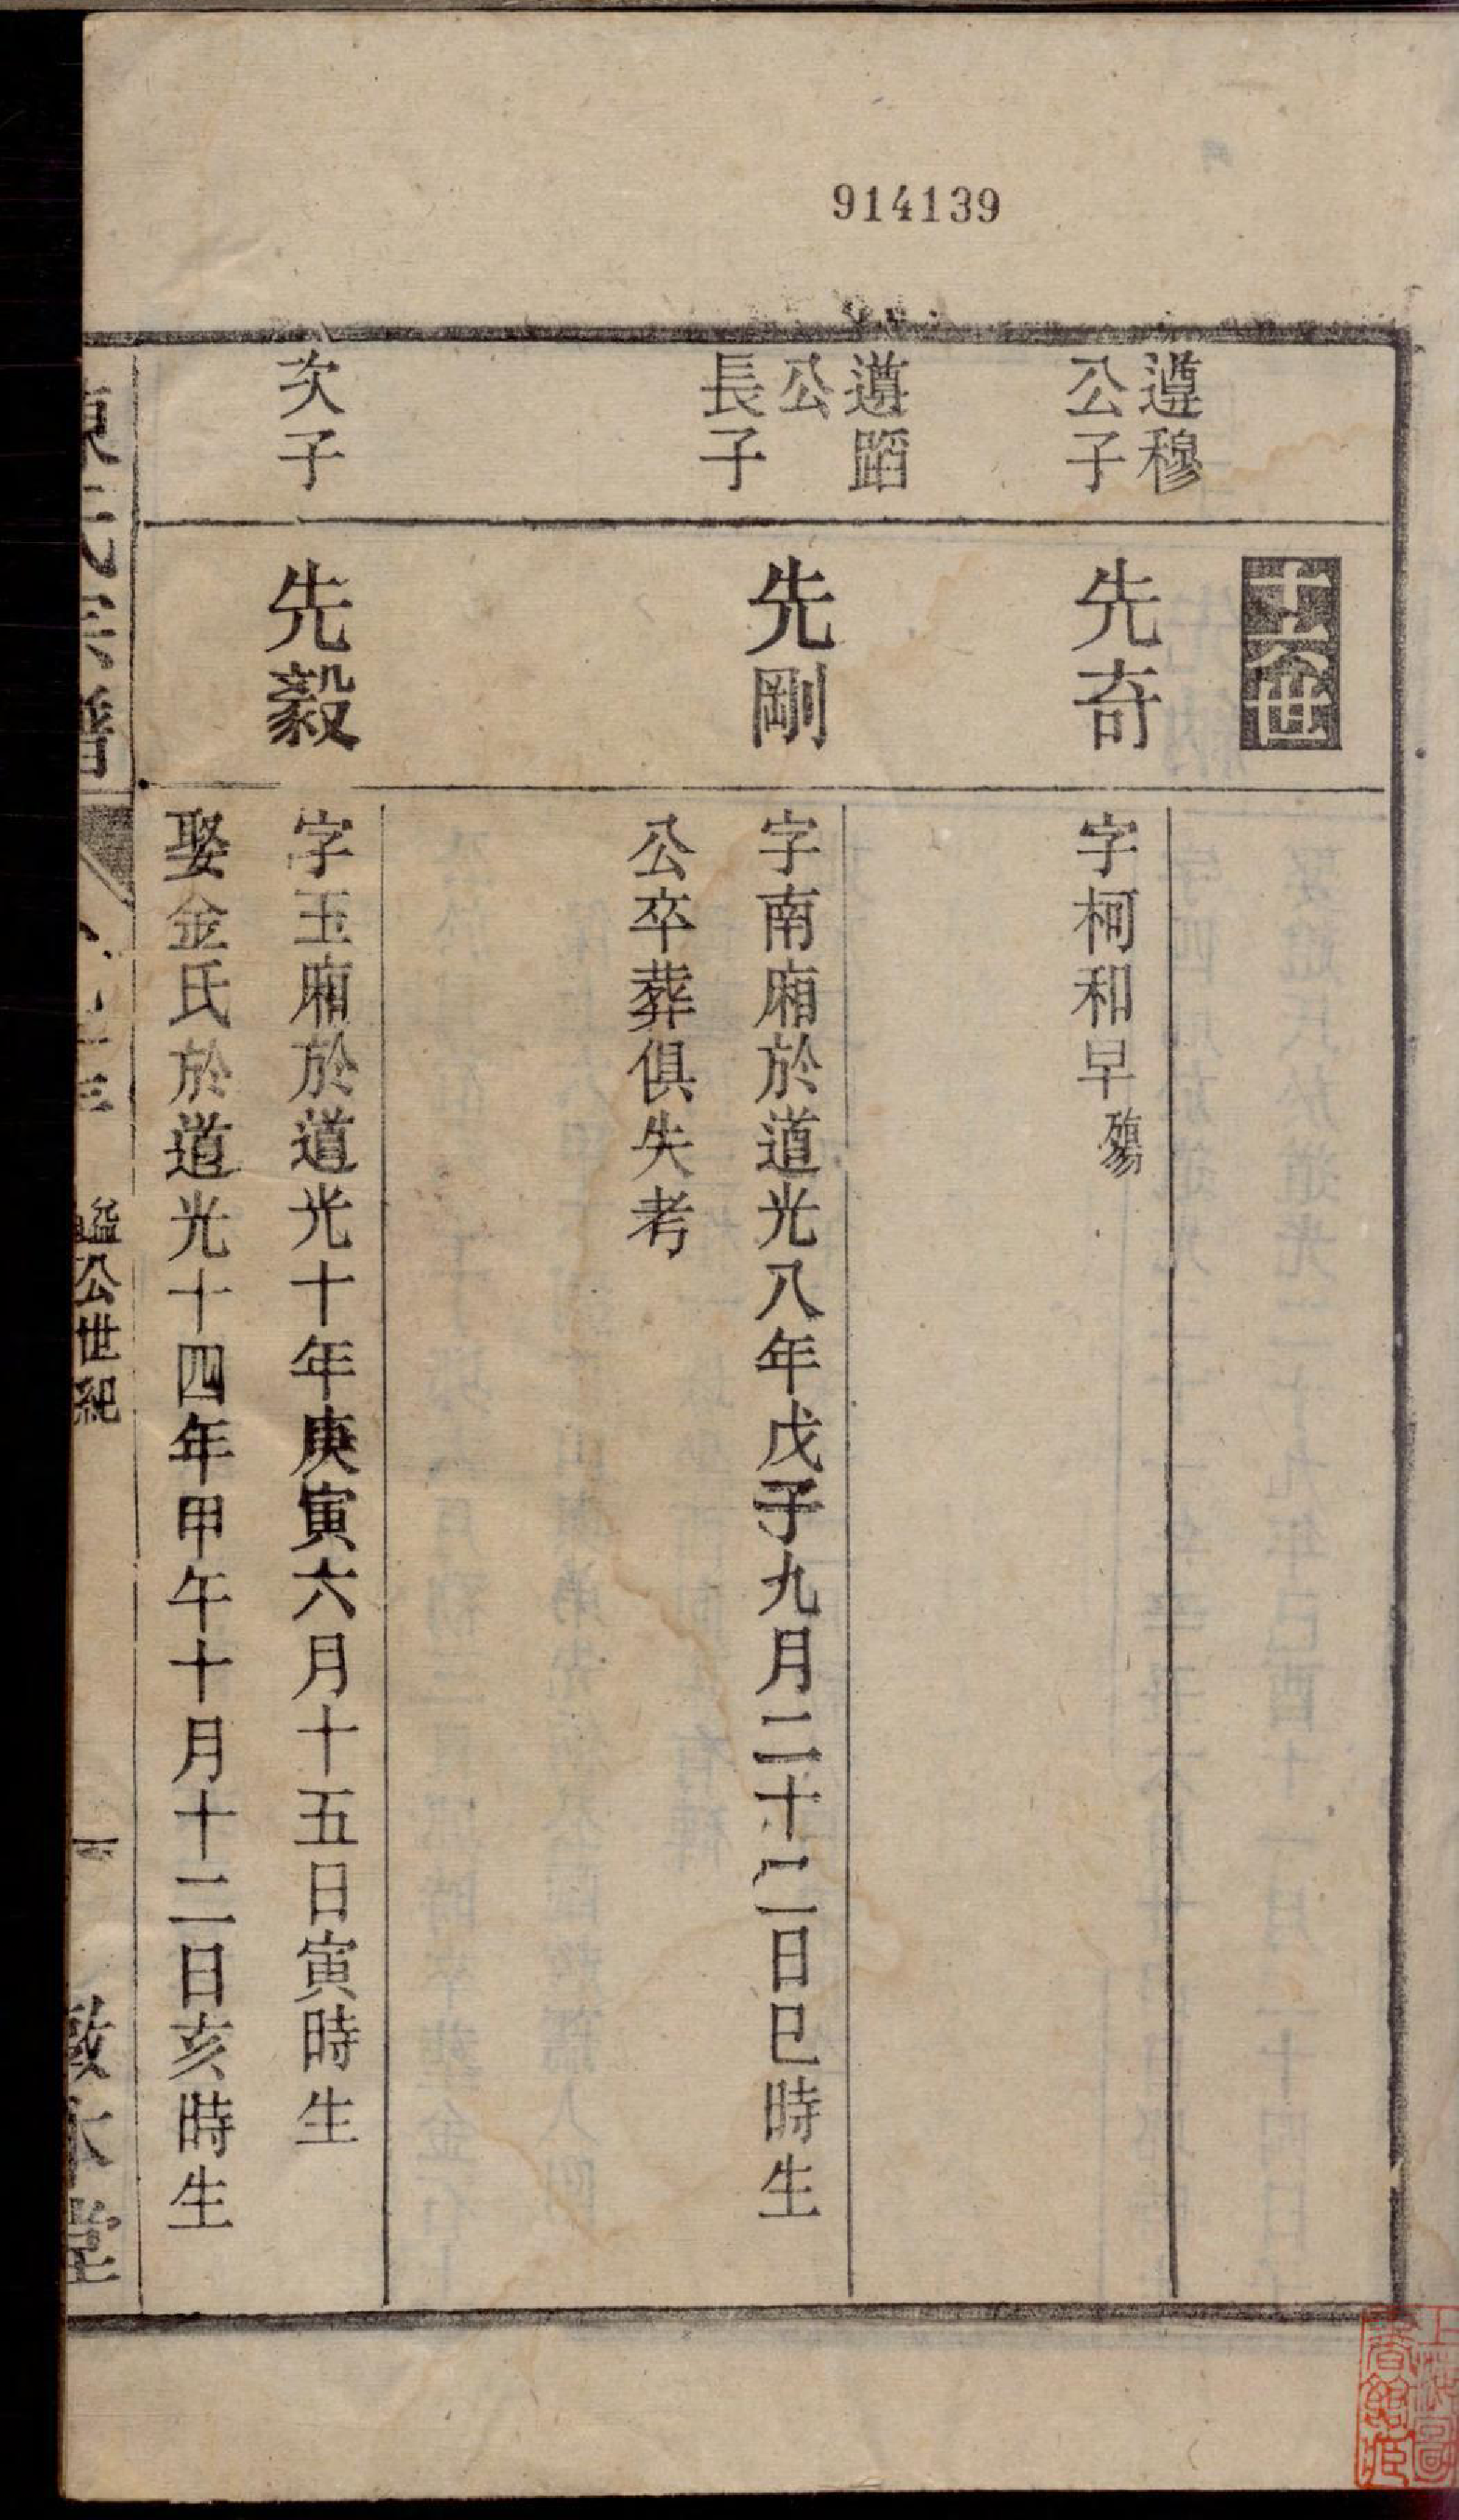 914139
十六世
遵穆
公子
先奇
字柯和早殤
遵蹈
公
長子
先剛
字南廂於道光八年戊子九月二十二日巳時生
公卒葬俱失考
次子
先毅
字玉廂於道光十年庚寅六月十五日寅時生
娶金氏於道光十四年甲午十月十二日亥時生
公世紀